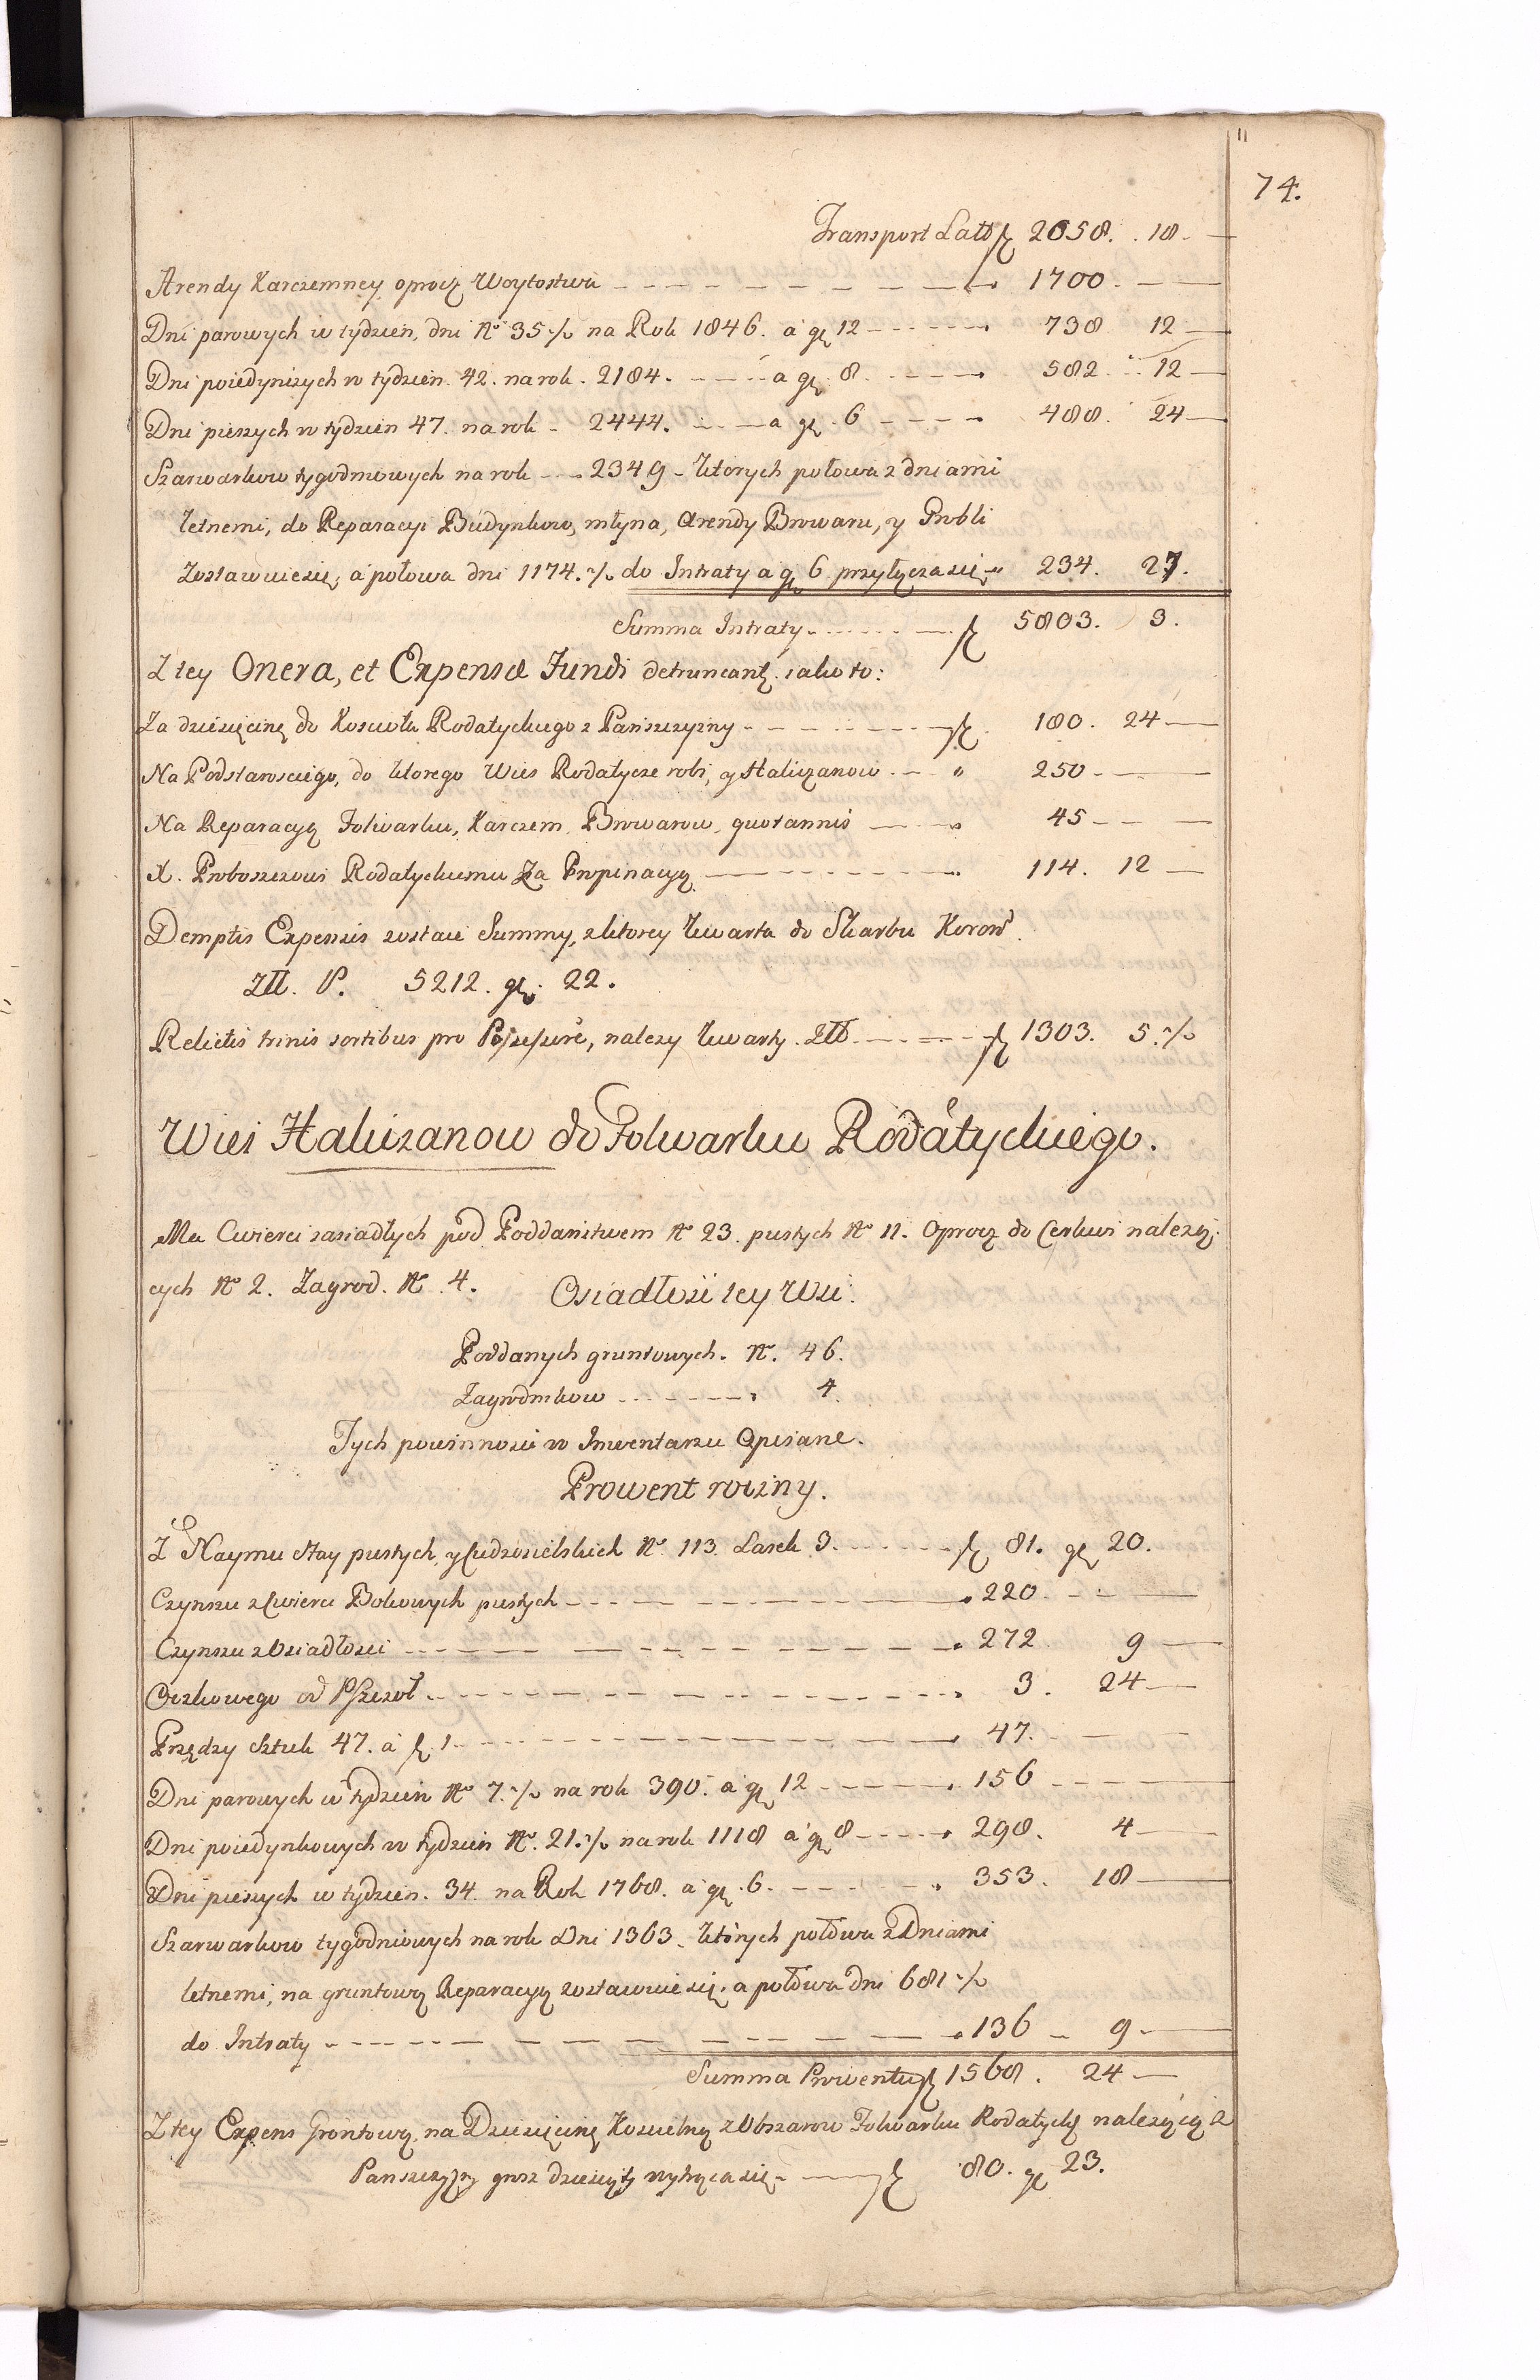 74.
Transport Latus fl 2058. 18.
Arendy Karczemney oprocz Woytostwa 1700.
Dni parowych w tydzien, dni No 35 ·/. na Rok 1846. a gr 12 738 12
Dni poiedyniszych w tydzien. 42. na rok. 2184. a gr 8. 582. 12
Dni pieszych w tydzien 47. na rok 2444. a gr. 6 488. 24
Szarwarkow tygodniowych na rok 2349 ktorych połowa z dniami
letnemi, do Reparacyi Budynkow, młyna, Arendy Browaru, y Grobli
zostawuie się, a połowa dni 1174. ·/. do Intraty a gr 6 przyłącza się 234. 27.
Summa Intraty fl 5803. 3.
Z tey Onera, et Expensæ Fundi detruncant. iako to:
Za dziesięcinę do Koscioła Rodatyckiego z Pańszczyzny fl. 180. 24
Na Podstarosciego, do ktorego Wies Rodatycze robi, y Haliczanow 250
Na Reparacyą Folwarku, Karczem, Browarow, quotannis 45
X. Proboszczowi Rodatyckiemu Za Propinacyą 114. 12
Demptis Expensis zostaie Summy, z ktorey kwarta do Skarbu Koron
Złł. P. 5212. gr. 22.
Relictis trinis sortibus pro Possessore, nalezy kwarty. Złł. fl 1303. 5 ·/.
Wieś Haliczanow do Folwarku Rodatyckiego.
Ma Cwierci zasiadłych pod Poddaństwem No 23. pustych No 11. Oprocz do Cerkwi należą-
cych No 2. Zagrod. No 4. Osiadłość tey Wsi.
Poddanych gruntowych. No. 46.
Zagrodnikow 4.
Tych powinnosci w Inwentarzu Opisane.
Prowent roczny.
Z Naymu Stay pustych, y Cudzosielskich No. 113. Lasek 3. fl 81. gr 20.
Czynszu z Cwierci Bokowych pustych 220.
Czynszu z Osiadłosci 272. 9
Oczkowego od Pszczoł 3. 24
Przędzy Sztuk 47. a fl. 1 47.
Dni parowych w tydzien No 7. ·/. na rok 390. a gr 12 156
Dni poiedynkowych w tydzien No. 21. ·/. na rok 1118 a gr 8 298. 4
Dni pieszych w tydzien. 34. na Rok 1768. a gr. 6. 353. 18
Szarwarkow tygodniowych na rok Dni 1363. ktorych połowa z Dniami
letnemi, na gruntową Reparacyą zostawuie się. a połowa dni 681 ·/.
do Intraty 136 9
Summa Prowentu fl 1568. 24
Z tey Expens Gruntowy, na Dziesięcinę Koscielną z Obszarow Folwarku Rodatyck. należącą z
Pańszczyzny grosz dziesiąty wytrąca się fl 80. gr 23.